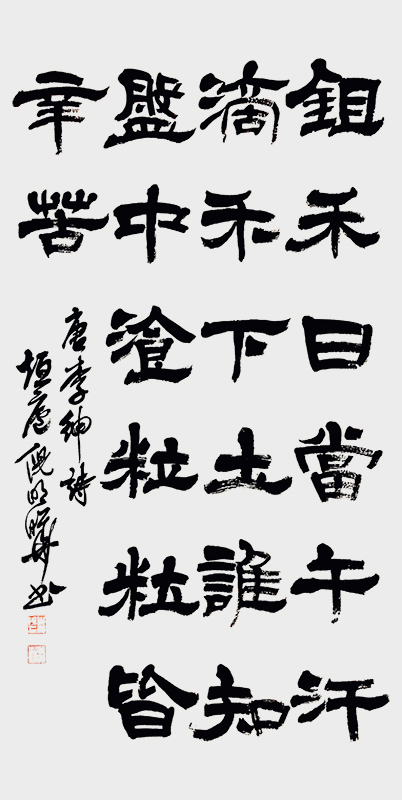 鉏禾日當午汗
滴禾下土誰知
盤中湌粒粒皆
辛苦
唐李紳詩
垣廬倪明書